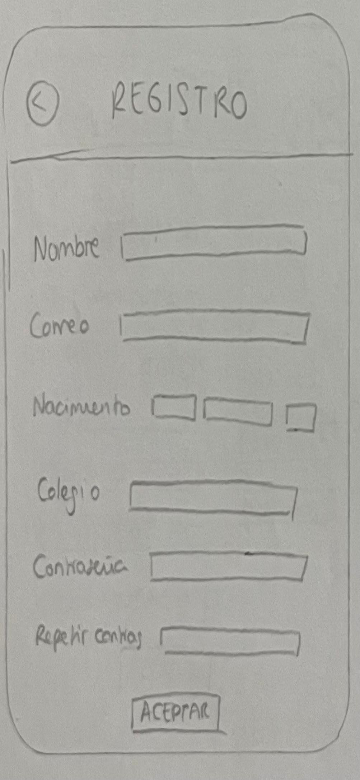 REGISTRO
Nombre
Correo
Nacimiento
Colegio
Contraseña
Repetir contras
ACEPTAR